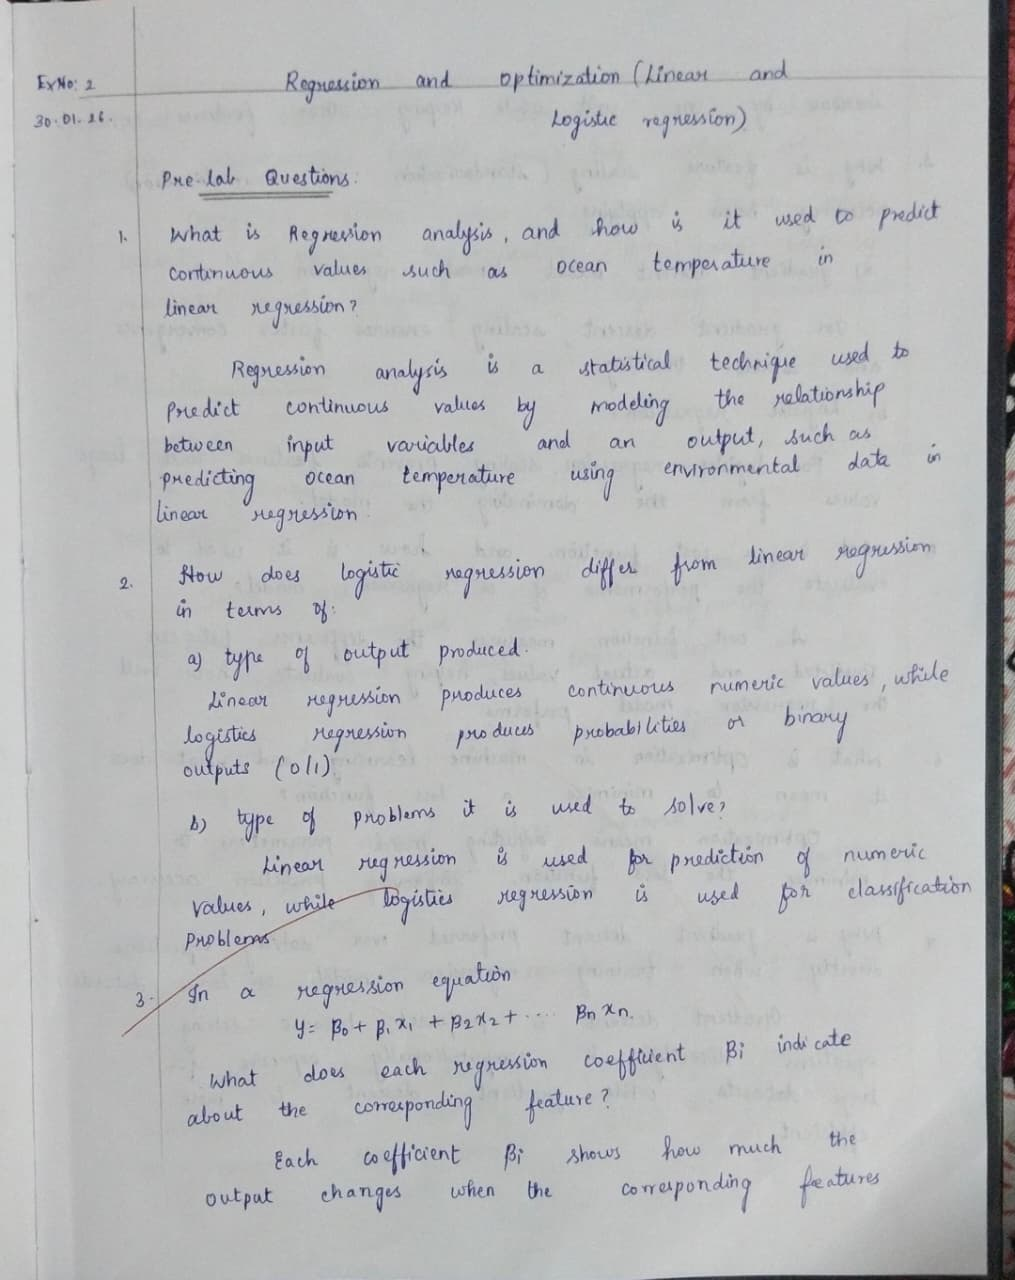 ExNo: 2
Regression and optimization (Linear and
30.01.26.
Logistic regression)
Pre-lab Questions:
1. What is Regression analysis, and how is it used to predict
continuous values such as ocean temperature in
linear regression?
Regression analysis is a statistical technique used to
predict continuous values by modeling the relationship
between input variables and an output, such as
predicting ocean temperature using environmental data in
linear regression.
2. How does logistic regression differ from linear regression
in terms of:
a) type of output produced.
Linear regression produces continuous numeric values, while
logistics regression produces probabilities or binary
outputs (0/1)
b) type of problems it is used to solve?
Linear regression is used for prediction of numeric
values, while logistics regression is used for classification
problems
3. In a regression equation
y = β0 + β1 x1 + β2 x2 + .... βn xn.
What does each regression coefficient βi indicate
about the corresponding feature?
Each coefficient βi shows how much the
output changes when the corresponding features